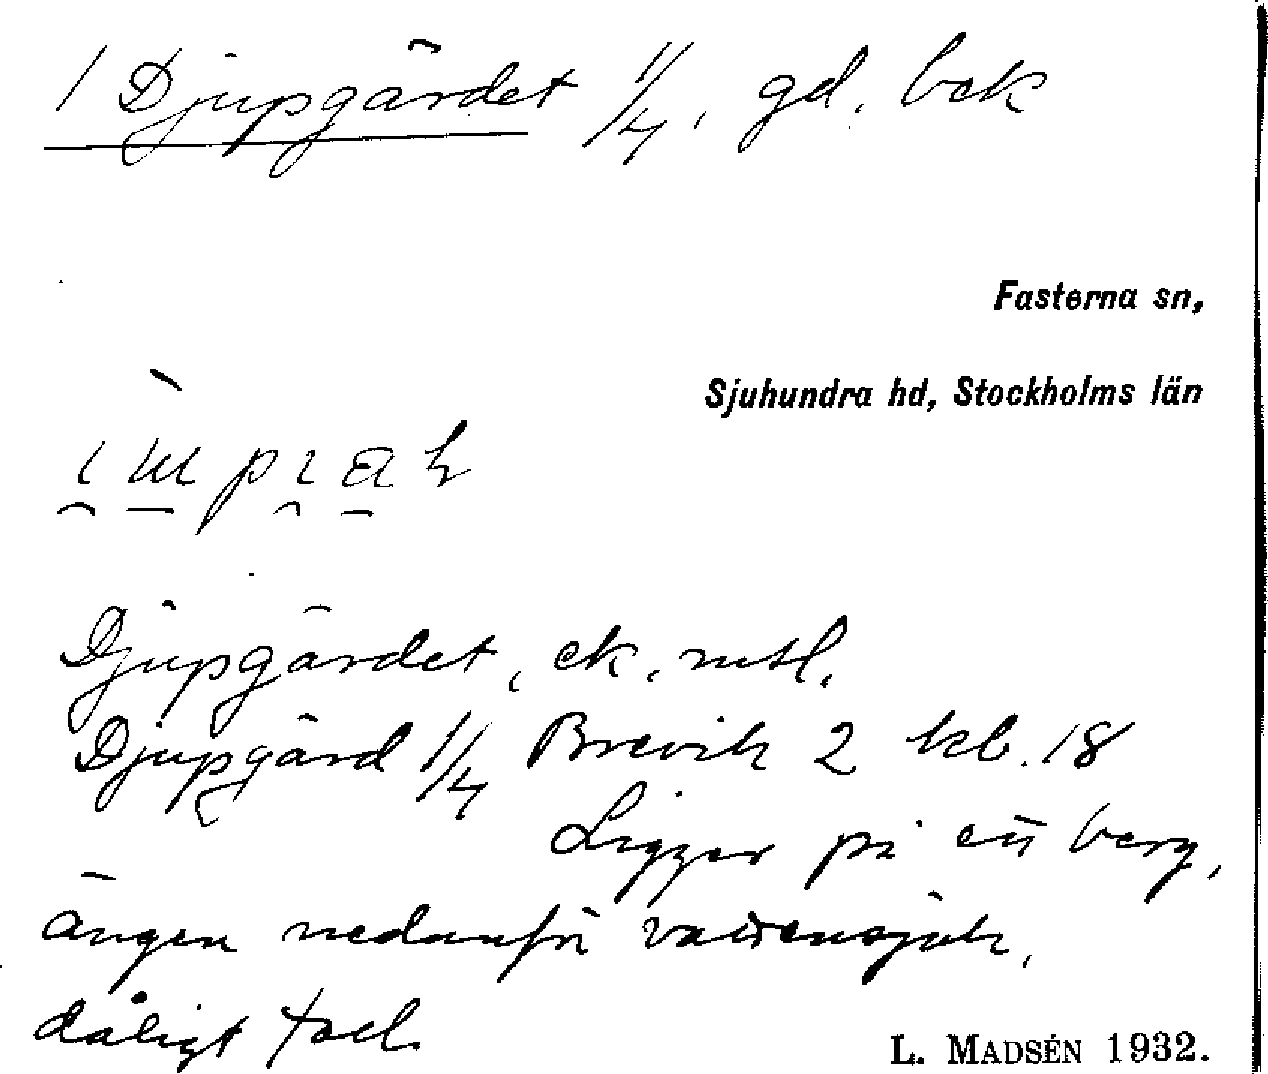 / Djupgärdet 1/4, gd. bek
Fasterna sn,
Sjuhundra hd, Stockholms län
Djupgärdet, ek. mtl.
Djupgärd 1/4 Brevik 2 kb. 18
Ligger på ett berg,
ängen nedanför vattensjuk,
dåligt
L. MADSÉN 1932.